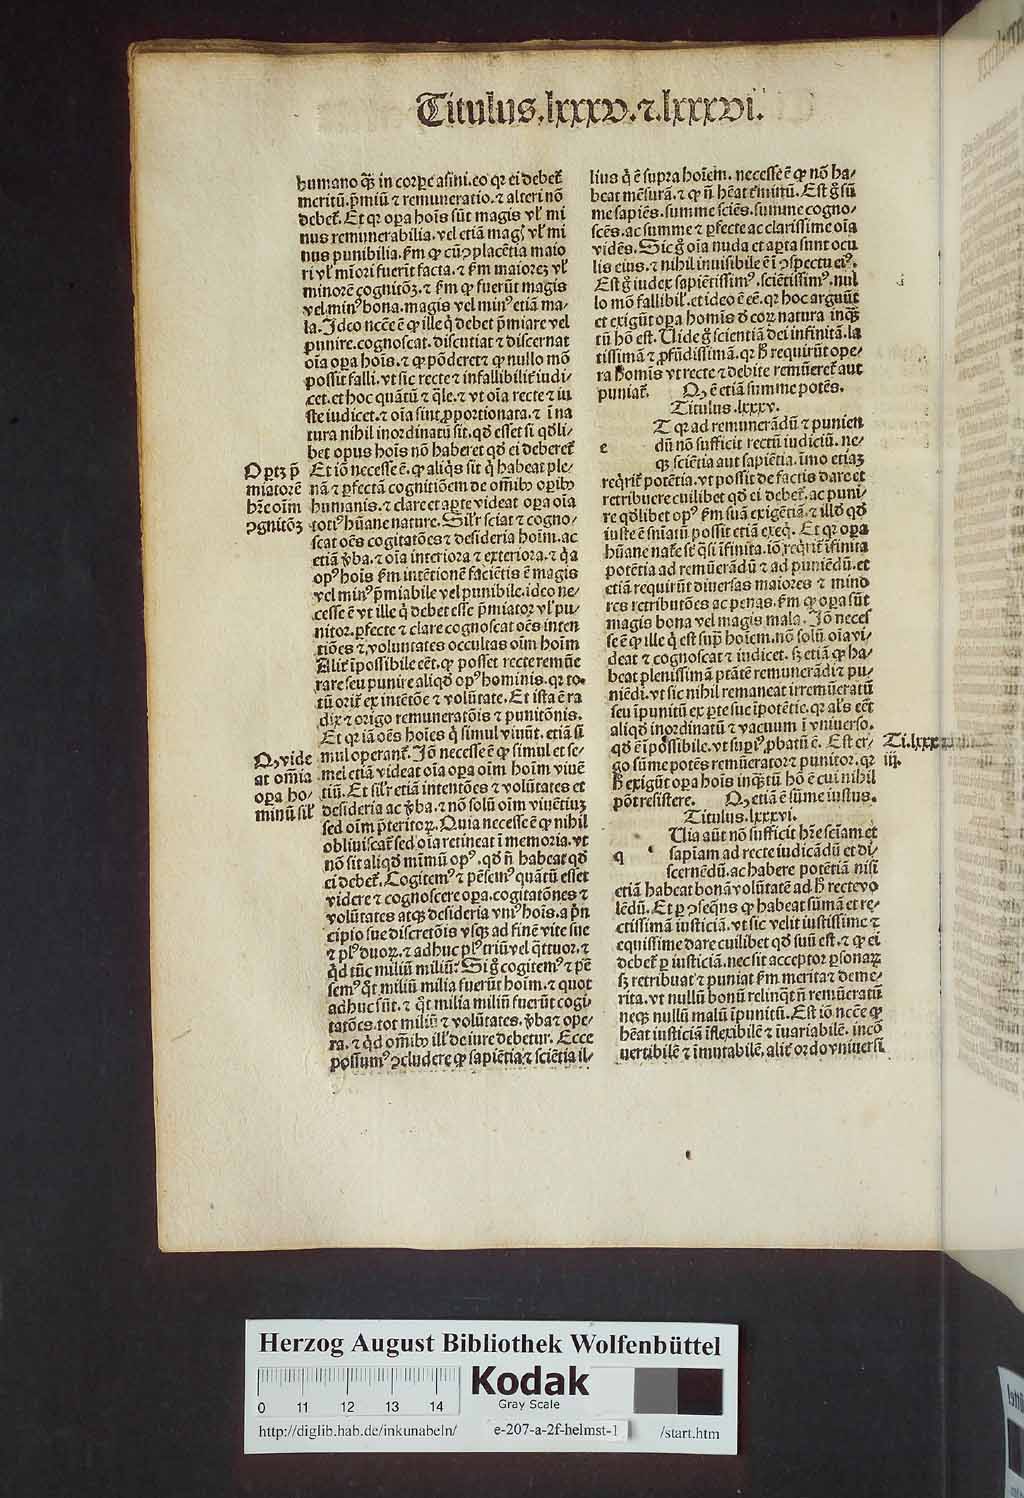 Titulus.lxxxv.⁊.lxxxvi.
humano qȝ̃ in corpe asini.eo qꝛ ei debet̃
meritũ.p̃miũ ⁊ remuneratio.⁊ alteri nõ
debet̃. Et qꝛ oꝑa hoĩs sũt magis vl' mi
nus remunerabilia.vel etiã magꝭ vl' mi
nus punibilia.ẜm ꝙ cũ ꝯplacẽtia maio
ri vl' miori fuerũt facta.⁊ ẜm maiorez vl'
minorẽ cognitõȝ.⁊ ẜm ꝙ fuerũt magis
vel minꝰ bona.magis vel minꝰ etiã ma⸗
la. Ideo ncc̃e ẽ ꝙ ille q̇ debet p̃miare vel
punire.cognoscat.discutiat ⁊ discernat
oĩa oꝑa hoĩs.⁊ ꝙ põderet ⁊ ꝙ nullo mõ
possit falli.vt sic recte ⁊ infallibilit̃ iudi⸗
cet.et hoc quãtũ ⁊ q̃le.⁊ vt oĩa recte ⁊ iu
ste iudicet.⁊ oĩa sint ꝓportionata.⁊ ĩ na
tura nihil inordinatũ sit.qð esset si qðli⸗
bet opus hoĩs nõ haberet qð ei deberet̃
Et iõ necesse ẽ.ꝙ aliq̇s sit q̇ habeat ple⸗
nã ⁊ ꝑfectã cognitiõem de om̃ibꝰ oꝑibꝰ
humanis.⁊ clare et aꝑte videat oꝑa oĩa
totiꝰ hũane nature. Sil'r sciat ⁊ cogno⸗
scat oẽs cogitatões ⁊ desideria hoĩm.ac
etiã ꝟba.⁊ oĩa interiora ⁊ exteriora.⁊ q̇a
opꝰ hoĩs ẜm intẽtionẽ faciẽtis ẽ magis
vel minꝰ p̃miabile vel punibile.ideo ne⸗
cesse ẽ vt ille q̇ debet esse p̃miator vl' pu⸗
nitor.ꝑfecte ⁊ clare cognoscat oẽs inten
tiões ⁊ voluntates occultas oĩm hoĩm
Alit̃ ĩpossibile eẽt.ꝙ posset recte remũe
rare seu punire aliqð opꝰ hominis.qꝛ to⸗
tũ orit̃ ex intẽtõe ⁊ volũtate. Et ista ẽ ra
dix ⁊ origo remuneratõis ⁊ punitõnis.
Et qꝛ iã oẽs hoĩes q̇ simul viuũt.etiã si
mul operant̃. Iõ necesse ẽ ꝙ simul et se⸗
mel etiã videat oĩa oꝑa oĩm hoĩm viuẽ
tiũ. Et sil'r etiã intentões ⁊ volũtates et
desideria ac ꝟba.⁊ nõ solũ oĩm viuẽtiuȝ
sed oĩm p̃teritoꝝ. Quia necesse ẽ ꝙ nihil
obliuiscat̃ sed oĩa retineat ĩ memoria.vt
nõ sit aliqð minimũ opꝰ.qð ñ habeat qð
ei debet̃. Cogitemꝰ ⁊ pẽsemꝰ quãtũ esset
videre ⁊ cognoscere oꝑa.cogitatõnes ⁊
volũtates atqȝ desideria vniꝰ hoĩs.a p̃n
cipio sue discretõis vsqȝ ad finẽ vite sue
⁊ pl'ꝰ duoꝝ.⁊ adhuc pl'ꝰ triũ vel q̃ttuor.⁊
q̇d tũc miliũ miliũ: Si g̊ cogitemꝰ ⁊ pẽ
semꝰ q̃t miliũ milia fuerũt hoĩm.⁊ quot
adhuc sũt.⁊ q̃t milia miliũ fuerũt cogi
tatões.tot miliũ ⁊ volũtates.ꝟba ⁊ ope⸗
ra.⁊ q̇d om̃ibꝰ ill' de iure debetur. Ecce
possumꝰ ꝯcludere ꝙ sapiẽtia ⁊ sciẽtia il⸗
Oportȝ p̃
miatorẽ
hr̃e oĩm
ꝯgnitõȝ
Qꝙ vide
at om̃ia
oꝑa ho⸗
minũ sil'
lius q̇ ẽ supra hoĩem.necesse ẽ ꝙ nõ ha⸗
beat mẽsurã.⁊ ꝙ ñ hẽat t̃minũ. Est g̊ sũ
me sapiẽs.summe sciẽs.summe cogno⸗
scẽs.ac summe ⁊ ꝑfecte ac clarissime oĩa
vidẽs. Sic g̊ oĩa nuda et aꝑta sunt ocu
lis eius.⁊ nihil inuisibile ẽ ĩ ꝯspectu eiꝰ.
Est g̊ iudex sapiẽtissimꝰ.sciẽtissimꝰ.nul
lo mõ fallibil'.et ideo ẽ eẽ.qꝛ hoc arguũt
et exigũt oꝑa homĩs ⁊ eoꝝ natura inqȝ̃
tũ hõ est. Uide g̊ scientiã dei infinitã.la
tissimã ⁊ ꝓfũdissimã.qꝛ h̃ requirũt ope⸗
ra homĩs vt recte ⁊ debite remũeret̃ aut
puniat̃. Qꝙ ẽ etiã summe potẽs.
Titulus.lxxxv.
e
T qꝛ ad remunerãdũ ⁊ punien
dũ nõ sufficit rectũ iudiciũ.ne⸗
qȝ sciẽtia aut sapiẽtia.imo etiaȝ
req̇rit̃ potẽtia.vt possit de factis dare et
retribuere cuilibet qð ei debet̃.ac puni⸗
re qðlibet opꝰ ẜm suã exigẽtiã.⁊ illð qð
iuste ẽ sniatũ possit etiã exeq̇. Et qꝛ oꝑa
hũane nat̃e sũt q̃si ĩfinita.iõ req̇rit̃ ĩfinita
potẽtia ad remũerãdũ ⁊ ad puniẽdũ.et
etiã requirũt diuersas maiores ⁊ mino
res retributões ac penas.ẜm ꝙ oꝑa sũt
magis bona vel magis mala. Iõ neces
se ẽ ꝙ ille q̇ est sup̃ hoĩem.nõ solũ oĩa vi⸗
deat ⁊ cognoscat ⁊ iudicet.sȝ etiã ꝙ ha⸗
beat plenissimã ptãtẽ remunerãdi ⁊ pu⸗
niẽdi.vt sic nihil remaneat irremũeratũ
seu ĩpunitũ ex ꝑte sue ĩpotẽtie.qꝛ al's eẽt
aliqð inordinatũ ⁊ vacuum ĩ vniuerso.
qð ẽ ĩpossibile.vt supiꝰ ꝓbatũ ẽ. Est er⸗
go sũme potẽs remũerator ⁊ punitor.qꝛ
h̃ exigũt oꝑa hoĩs inqȝ̃tũ hõ ẽ cui nihil
põt resistere. Qꝙ etiã ẽ sũme iustus.
Titulus.lxxxvi.
q
Uia aũt nõ sufficit hr̃e sciam et
sapiam ad recte iudicãdũ et di⸗
scernẽdũ.ac habere potẽtiã nisi
etiã habeat bonã volũtatẽ ad h̃ recte vo
lẽdũ. Et ꝑ ꝯseqñs ꝙ habeat sũmã et re⸗
ctissimã iusticiã.vt sic velit iustissime ⁊
equissime dare cuilibet qð suũ est.⁊ ꝙ ei
debet̃ ꝑ iusticiã.nec sit acceptor ꝑsonaꝝ
sȝ retribuat ⁊ puniat ẜm merita ⁊ deme⸗
rita.vt nullũ bonũ relinq̃t̃ ñ remũeratũ
neqȝ nullũ malũ ĩpunitũ. Est iõ ncc̃e ꝙ
hẽat iusticiã ĩflexibilẽ ⁊ ĩuariabilẽ.incõ
uertibilẽ ⁊ ĩmutabilẽ.alit̃ ordo vniuersi
Ti.lxxx
iij.
Herzog August Bibliothek Wolfenbüttel
Kodak
Gray Scale
0 11 12 13 14
http://diglib.hab.de/inkunabeln/ e-207-a-2f-helmst-1 /start.htm